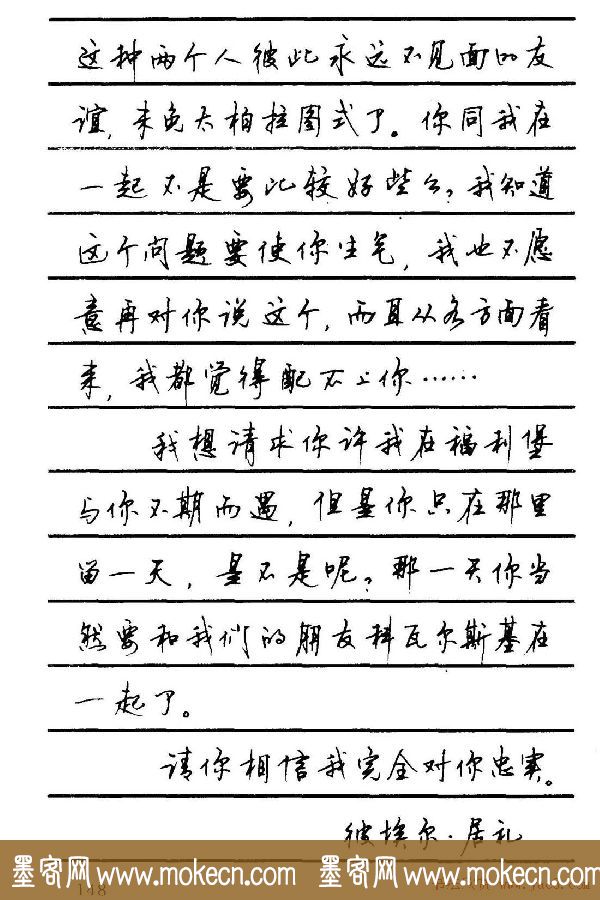 这种两个人彼此永远不见面的友
谊，未免太柏拉图式了。你同我在
一起不是要比较好些么？我知道
这个问题要使你生气，我也不愿
意再对你说这个，而且从各方面看
来，我都觉得配不上你……
我想请求你许我在福利堡
与你不期而遇，但是你只在那里
留一天，是不是呢？那一天你当
然要和我们的朋友科瓦尔斯基在
一起了。
请你相信我完全对你忠实。
彼埃尔·居礼
墨客网www.mokecn.com 墨客网www.mokecn.com
148